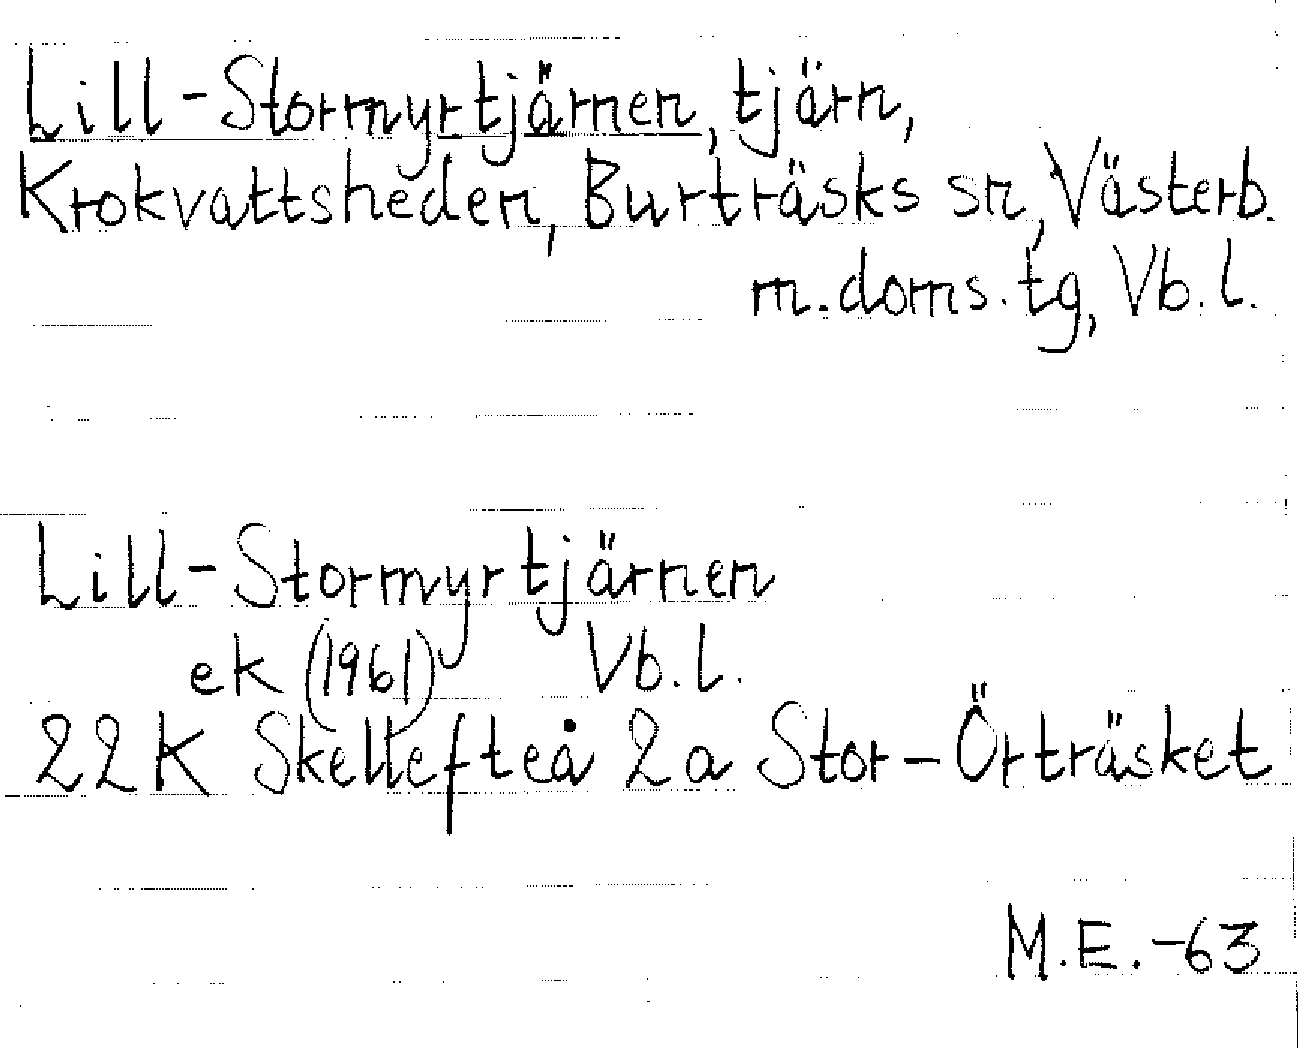 Lill-Stormyrtjärnen, tjärn,
Krokvattsheden, Burträsks sn, Västerb.
m. doms. tg, Vb. l.
Lill-Stormyrtjärnen
ek (1961) Vb. l.
22K Skellefteå 2a Stor-Örträsket
M.E.-63